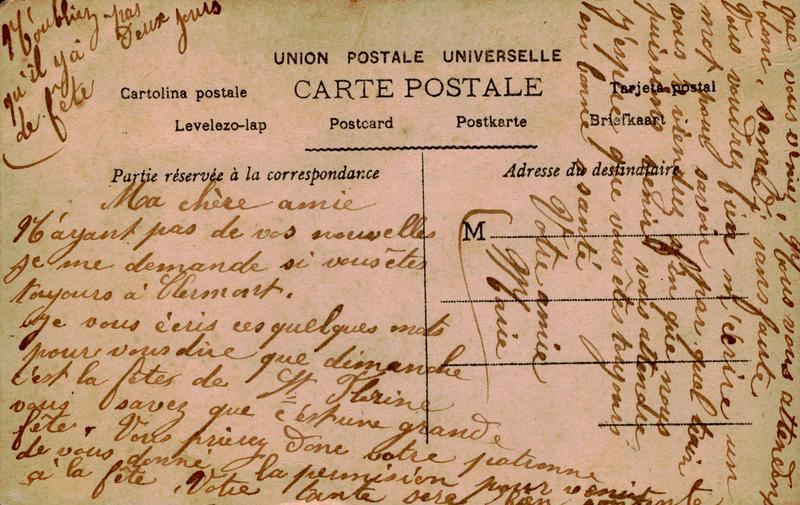 N'oubliez pas
qu'il y a deux jours
de fête
UNION POSTALE UNIVERSELLE
CARTE POSTALE
Cartolina postale
Tarjeta postal
Levelezo-lap
Postcard
Postkarte
Briefkaart
Partie réservée à la correspondance
Adresse du destinataire
M
Ma chère amie
N'ayant pas de vos nouvelles
je me demande si vous êtes
toujours à Clermont.
Je vous écris ces quelques mots
pour vous dire que dimanche
c'est la fêtes de St Florine
vous savez que c'est une grande
fête. Vous prierez donc votre patronne
de vous donné la permision pour venir
à la fête. Votre tante sera bien contente
que vous veniez, nous vous attendons
donc samedi sans faute
Vous voudrez bien m'écrire un
mot pour savoir par quel train
vous viendrez afin que nous
puissions venir vous attendre
J'espère que vous êtes toujours
en bonne santé
Votre amie
Marie